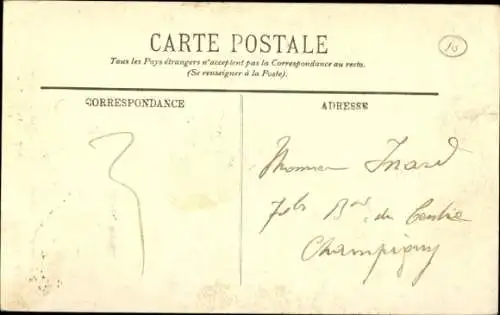 CARTE POSTALE
Tous les Pays étrangers n'acceptent pas la Correspondance au recto.
(Se renseigner à la Poste).
CORRESPONDANCE
ADRESSE
10
3
Monsieur Inard
Bard du Centre
Champigny